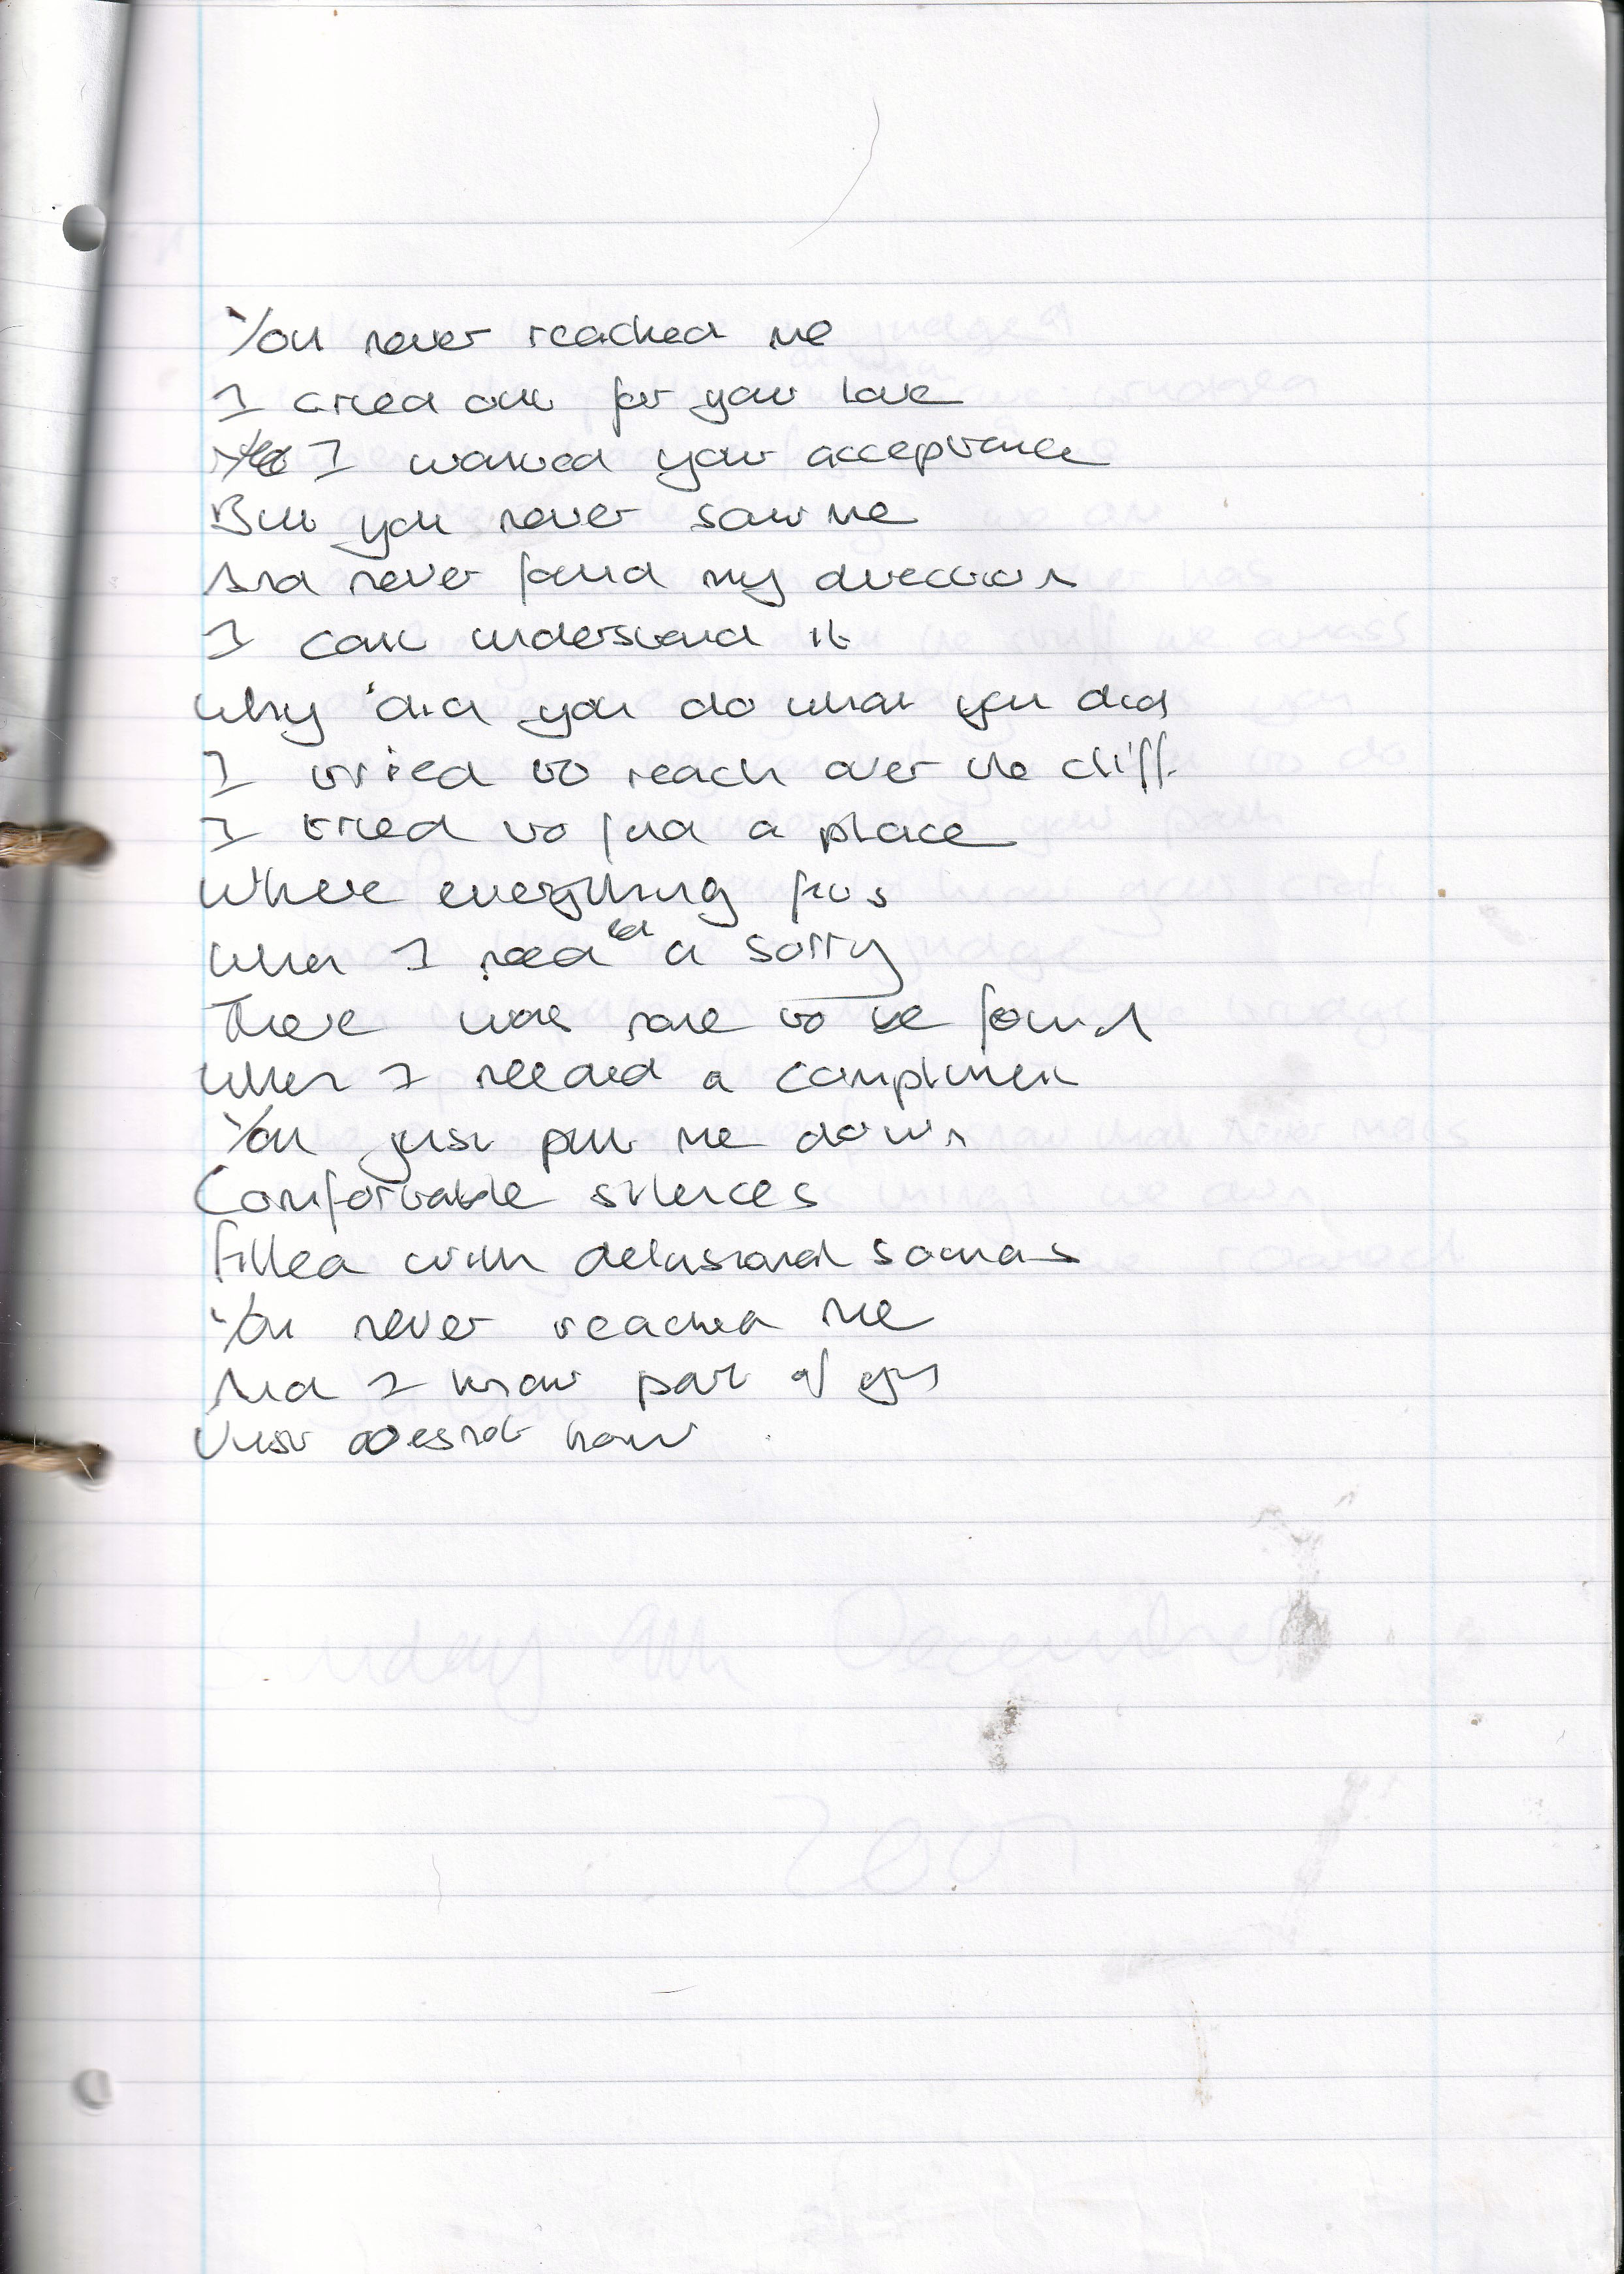 You never reached me
I cried out for your love
I wanted your acceptance
But you never saw me
And never found my direction
I cant understand it
Why did you do what you did
I tried to reach over the cliff
I tried to find a place
Where everything fits
When I needed a sorry
There was none to be found
When I needed a compliment
You just put me down
Comfortable silences
filled with delusional sounds
You never reached me
And I know part of you
Just doesnt know